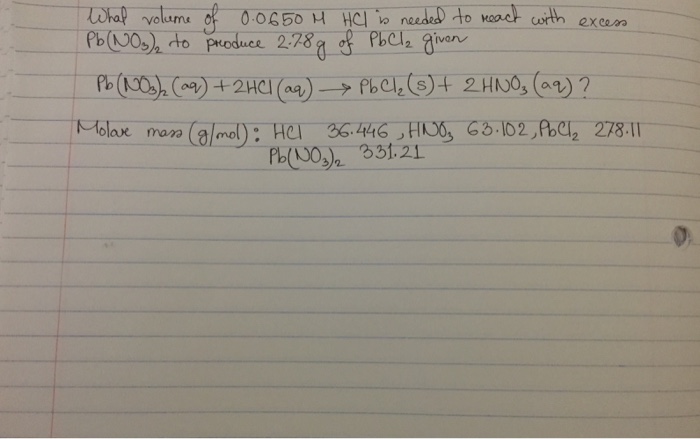 What volume of 0.0650 M HCl is needed to react with excess
Pb(NO₃)₂ to produce 2.78g of PbCl₂ given
Pb(NO₃)₂ (aq) + 2HCl (aq) → PbCl₂ (s) + 2HNO₃ (aq) ?
Molare mass (g/mol): HCl 36.446, HNO₃ 63.102, PbCl₂ 278.11
Pb(NO₃)₂ 331.21